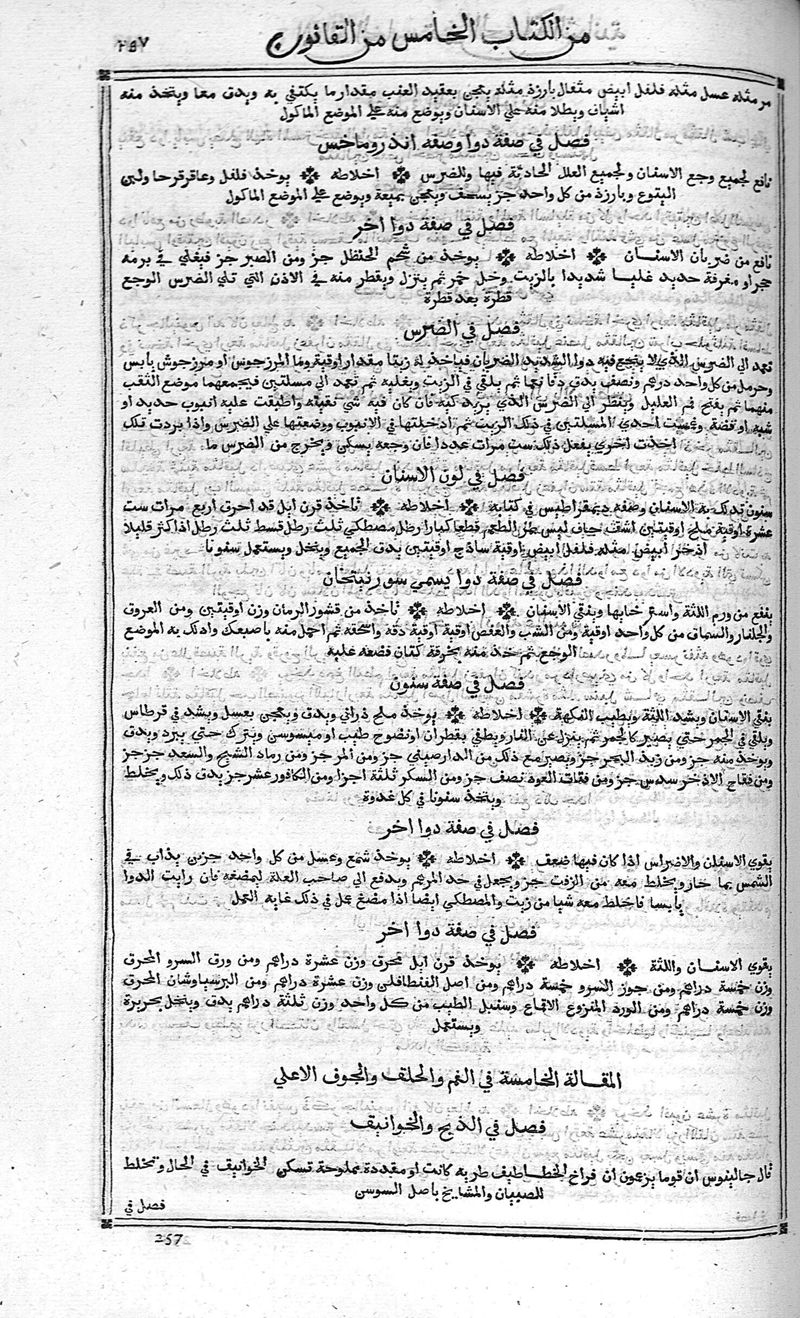 من الكتاب الخامس من القانون
٢٥٧
مر مثله عسل مثله فلفل ابيض مثقال بارزذ مثله يعجن بعقيد العنب مقدار ما يكتفي به ويدق معا ويتخذ منه
اشياف ويطلا منه علي الاسنان ويوضع منه علي الموضع الماكول
فصل في صفة دوا وصفه اندروماخس
نافع لجميع وجع الاسنان ولجميع العلل الحادثة فيها وللضرس اخلاطه يوخذ فلفل وعاقرقرحا ولبن
اليتوع وبارزذ من كل واحد جز يسحف ويعجن بميعة ويوضع علي الموضع الماكول
فصل في صفة دوا اخر
نافع من ضربان الاسنان اخلاطه يوخذ من شحم الحنظل جز ومن الصبر جز فيغلي في برمة
حجر او مغرفة حديد غليا شديدا بالزيت وخل خمر ثم ينزل ويقطر منه في الاذن التي تلي الضرس الوجع
قطرة بعد قطرة
فصل في الضرس
تعمد الي الضرس الذي لا ينجع فيه دوا الشديد الضربان فياخذ له زيتا مقدار اوقية وما المرزجوس او مرزجوش يابس
وحرمل من كل واحد درهم ونصف يدق دقا نعما ثم يلقي في الزيت ويغليه ثم تعمد الي مسلتين فيجمعهما موضع الثقب
منهما ثم يفتح فم العليل وينظر الي الضرس الذي يريد كيه فان كان فيه شي نقيته واطبقت عليه انبوب حديد او
شبه او فضة وغمست احدي المسلتين في ذلك الزيت ثم ادخلتها في الانبوب ووضعتها علي الضرس واذا بردت تلك
اخذت اخري يفعل ذلك ست مرات عددا فان وجعه يسكن ويخرج من الضرس ما
فصل في لون الاسنان
سنون تدلك به الاسنان وصفه ديمقراطيس في كتابه اخلاطه تاخذ قرن ايل قد احرق اربع مرات ست
عشرة اوقية ملح اوقيتين اشف جاف ليس بمر الطعم قطعا كبارا رطل مصطكي ثلث رطل قسط ثلث رطل اذا كثر قليلا
اذخر ابيض مثله فلفل ابيض اوقية ساذج اوقيتين يدق الجميع وينخل ويستعمل سنونا
فصل في صفة دوا يسمي سورنيتجان
ينفع من ورم اللثة واسترخايها وينقي الاسنان اخلاطه تاخذ من قشور الرمان وزن اوقيتين ومن العروق
والجلنار والسماق من كل واحد اوقية ومن الشب والعفص اوقية اوقية دقه واسحقه ثم احمل منه باصبعك وادلك به الموضع
الوجع ثم خذ منه بخرقة كتان فضعه عليه
فصل في صفة سنون
ينقي الاسنان ويشد اللثة ويطيب النكهة اخلاطه يوخذ ملح دراني ويدق ويعجن بعسل ويشد في قرطاس
ويلقي في الجمر حتي يصير كالجمر ثم ينزل عن النار ويطفي بقطران او نضوح طيب او ميسوسن ويترك حتي يبرد ويدق
ويوخذ منه جز ومن زبد البحر جز ويصير مع ذلك من الدارصيني جز ومن المر جز ومن رماد الشيح والسعد جز جز
ومن فقاح الاذخر سدس جز ومن فتات العود نصف جز ومن السكر ثلثة اجزا ومن الكافور عشر جز يدق ذلك ويخلط
ويتخذ سنونا في كل غدوة
فصل في صفة دوا اخر
يقوي الاسنان والاضراس اذا كان فيها ضعف اخلاطه يوخذ شمع وعسل من كل واحد جزين يذاب في
الشمس بما حار ويخلط معه من الزفت جز ويجعل في حد المرهم ويدفع الي صاحب العلة ليمضغه فان رايت الدوا
يابسا فاخلط معه شيا من زيت والمصطكي ايضا اذا مضغ عمل في ذلك غاية العمل
فصل في صفة دوا اخر
يقوي الاسنان واللثة اخلاطه يوخذ قرن ايل محرق وزن عشرة دراهم ومن ورق السرو المحرق
وزن خمسة دراهم ومن جوز السرو خمسة دراهم ومن اصل الفنطافلن وزن عشرة دراهم ومن البرسياوشان المحرق
وزن خمسة دراهم ومن الورد المنزوع الاقماع وسنبل الطيب من كل واحد وزن ثلثة دراهم يدق وينخل بحريرة
ويستعمل
المقالة الخامسة في الفم والحلق والجوف الاعلي
فصل في الذبح والخوانيق
قال جالينوس ان قوما يزعمون ان فراخ الخطاطيف طرية كانت او مقددة مملوحة تسكن الخوانيق في الحال وتخلط
للصبيان والمشايخ باصل السوسن
فصل في
257